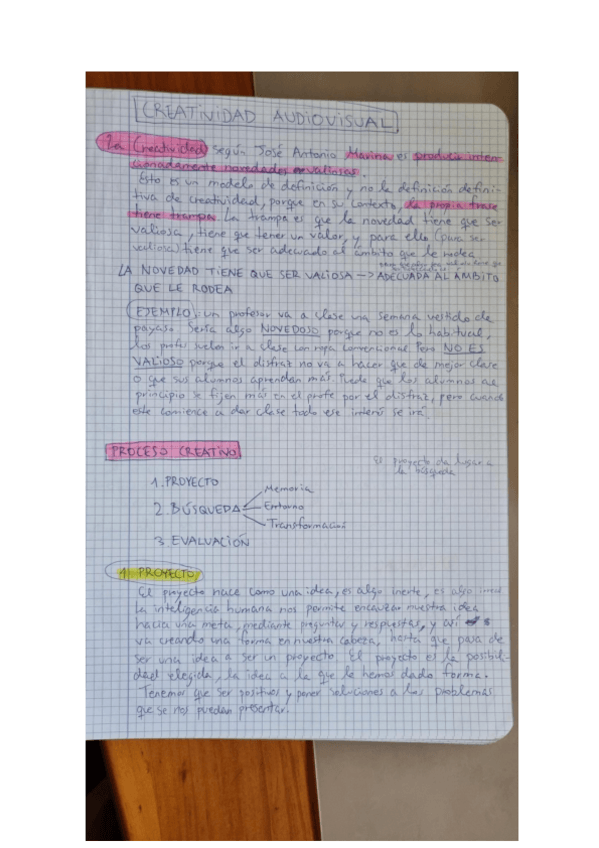 CREATIVIDAD AUDIOVISUAL
La Creatividad según José Antonio Marina es producir inten-
cionadamente novedades valiosas.
Esto es un modelo de definición y no la definición defini-
tiva de creatividad, porque en su contexto, la propia frase
tiene trampa. La trampa es que la novedad tiene que ser
valiosa, tiene que tener un valor, y para ello (para ser
valiosa) tiene que ser adecuado al ámbito que le rodea
LA NOVEDAD TIENE QUE SER VALIOSA → ADECUADA AL ÁMBITO
QUE LE RODEA
EJEMPLO: un profesor va a clase una semana vestido de
payaso. Sería algo NOVEDOSO porque no es lo habitual,
los profes suelen ir a clase con ropa convencional. Pero NO ES
VALIOSO porque el disfraz no va a hacer que de mejor clase
o que sus alumnos aprendan más. Puede que los alumnos al
principio se fijen más en el profe por el disfraz, pero cuando
este comience a dar clase todo ese interés se irá.
PROCESO CREATIVO
El proyecto da lugar a
la búsqueda
1. PROYECTO
2. BÚSQUEDA
Memoria
Entorno
Transformación
3. EVALUACIÓN
1. PROYECTO
El proyecto nace como una idea, es algo inerte, es algo
la inteligencia humana nos permite encauzar nuestra idea
hacia una meta, mediante preguntas y respuestas, y así
va creando una forma en nuestra cabeza, hasta que pasa de
ser una idea a ser un proyecto. El proyecto es la posibili-
dad elegida, la idea a la que le hemos dado forma.
Tenemos que ser positivos y poner soluciones a los problemas
que se nos puedan presentar.